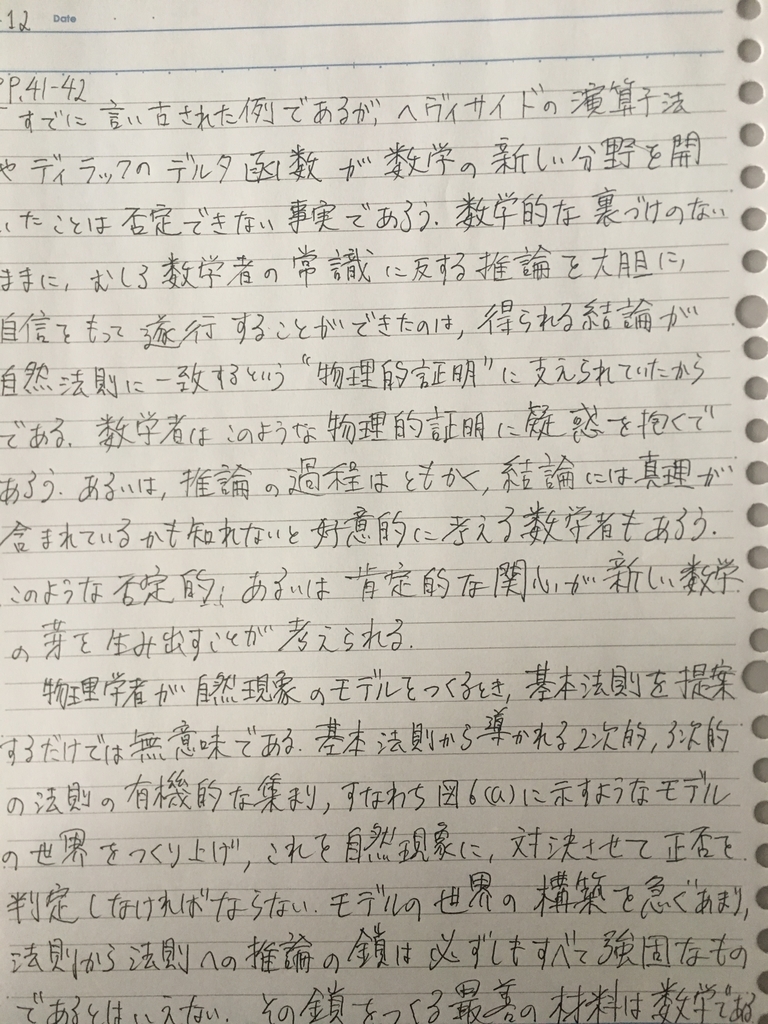 -12 Date
PP.41-42
すでに言い古された例であるが、ヘヴィサイドの演算子法
やディラックのデルタ函数が数学の新しい分野を開
いたことは否定できない事実であろう. 数学的な裏づけのない
ままに, むしろ数学者の常識に反する推論を大胆に,
自信をもって遂行することができたのは, 得られる結論が
自然法則に一致するという“物理的証明”に支えられていたから
である. 数学者はこのような物理的証明に疑惑を抱くで
あろう. あるいは, 推論の過程はともかく, 結論には真理が
含まれているかも知れないと好意的に考える数学者もあろう.
このような否定的, あるいは肯定的な関心が新しい数学
の芽を生み出すことが考えられる.
物理学者が自然現象のモデルをつくるとき, 基本法則を提案
するだけでは無意味である. 基本法則から導かれる2次的, 3次的
の法則の有機的な集まり, すなわち図6(a)に示すようなモデル
の世界をつくり上げ, これを自然現象に, 対決させて正否を
判定しなければならない. モデルの世界の構築を急ぐあまり,
法則から法則への推論の鎖は必ずしもすべて強固なもの
であるとはいえない. その鎖をつくる最善の材料は数学である